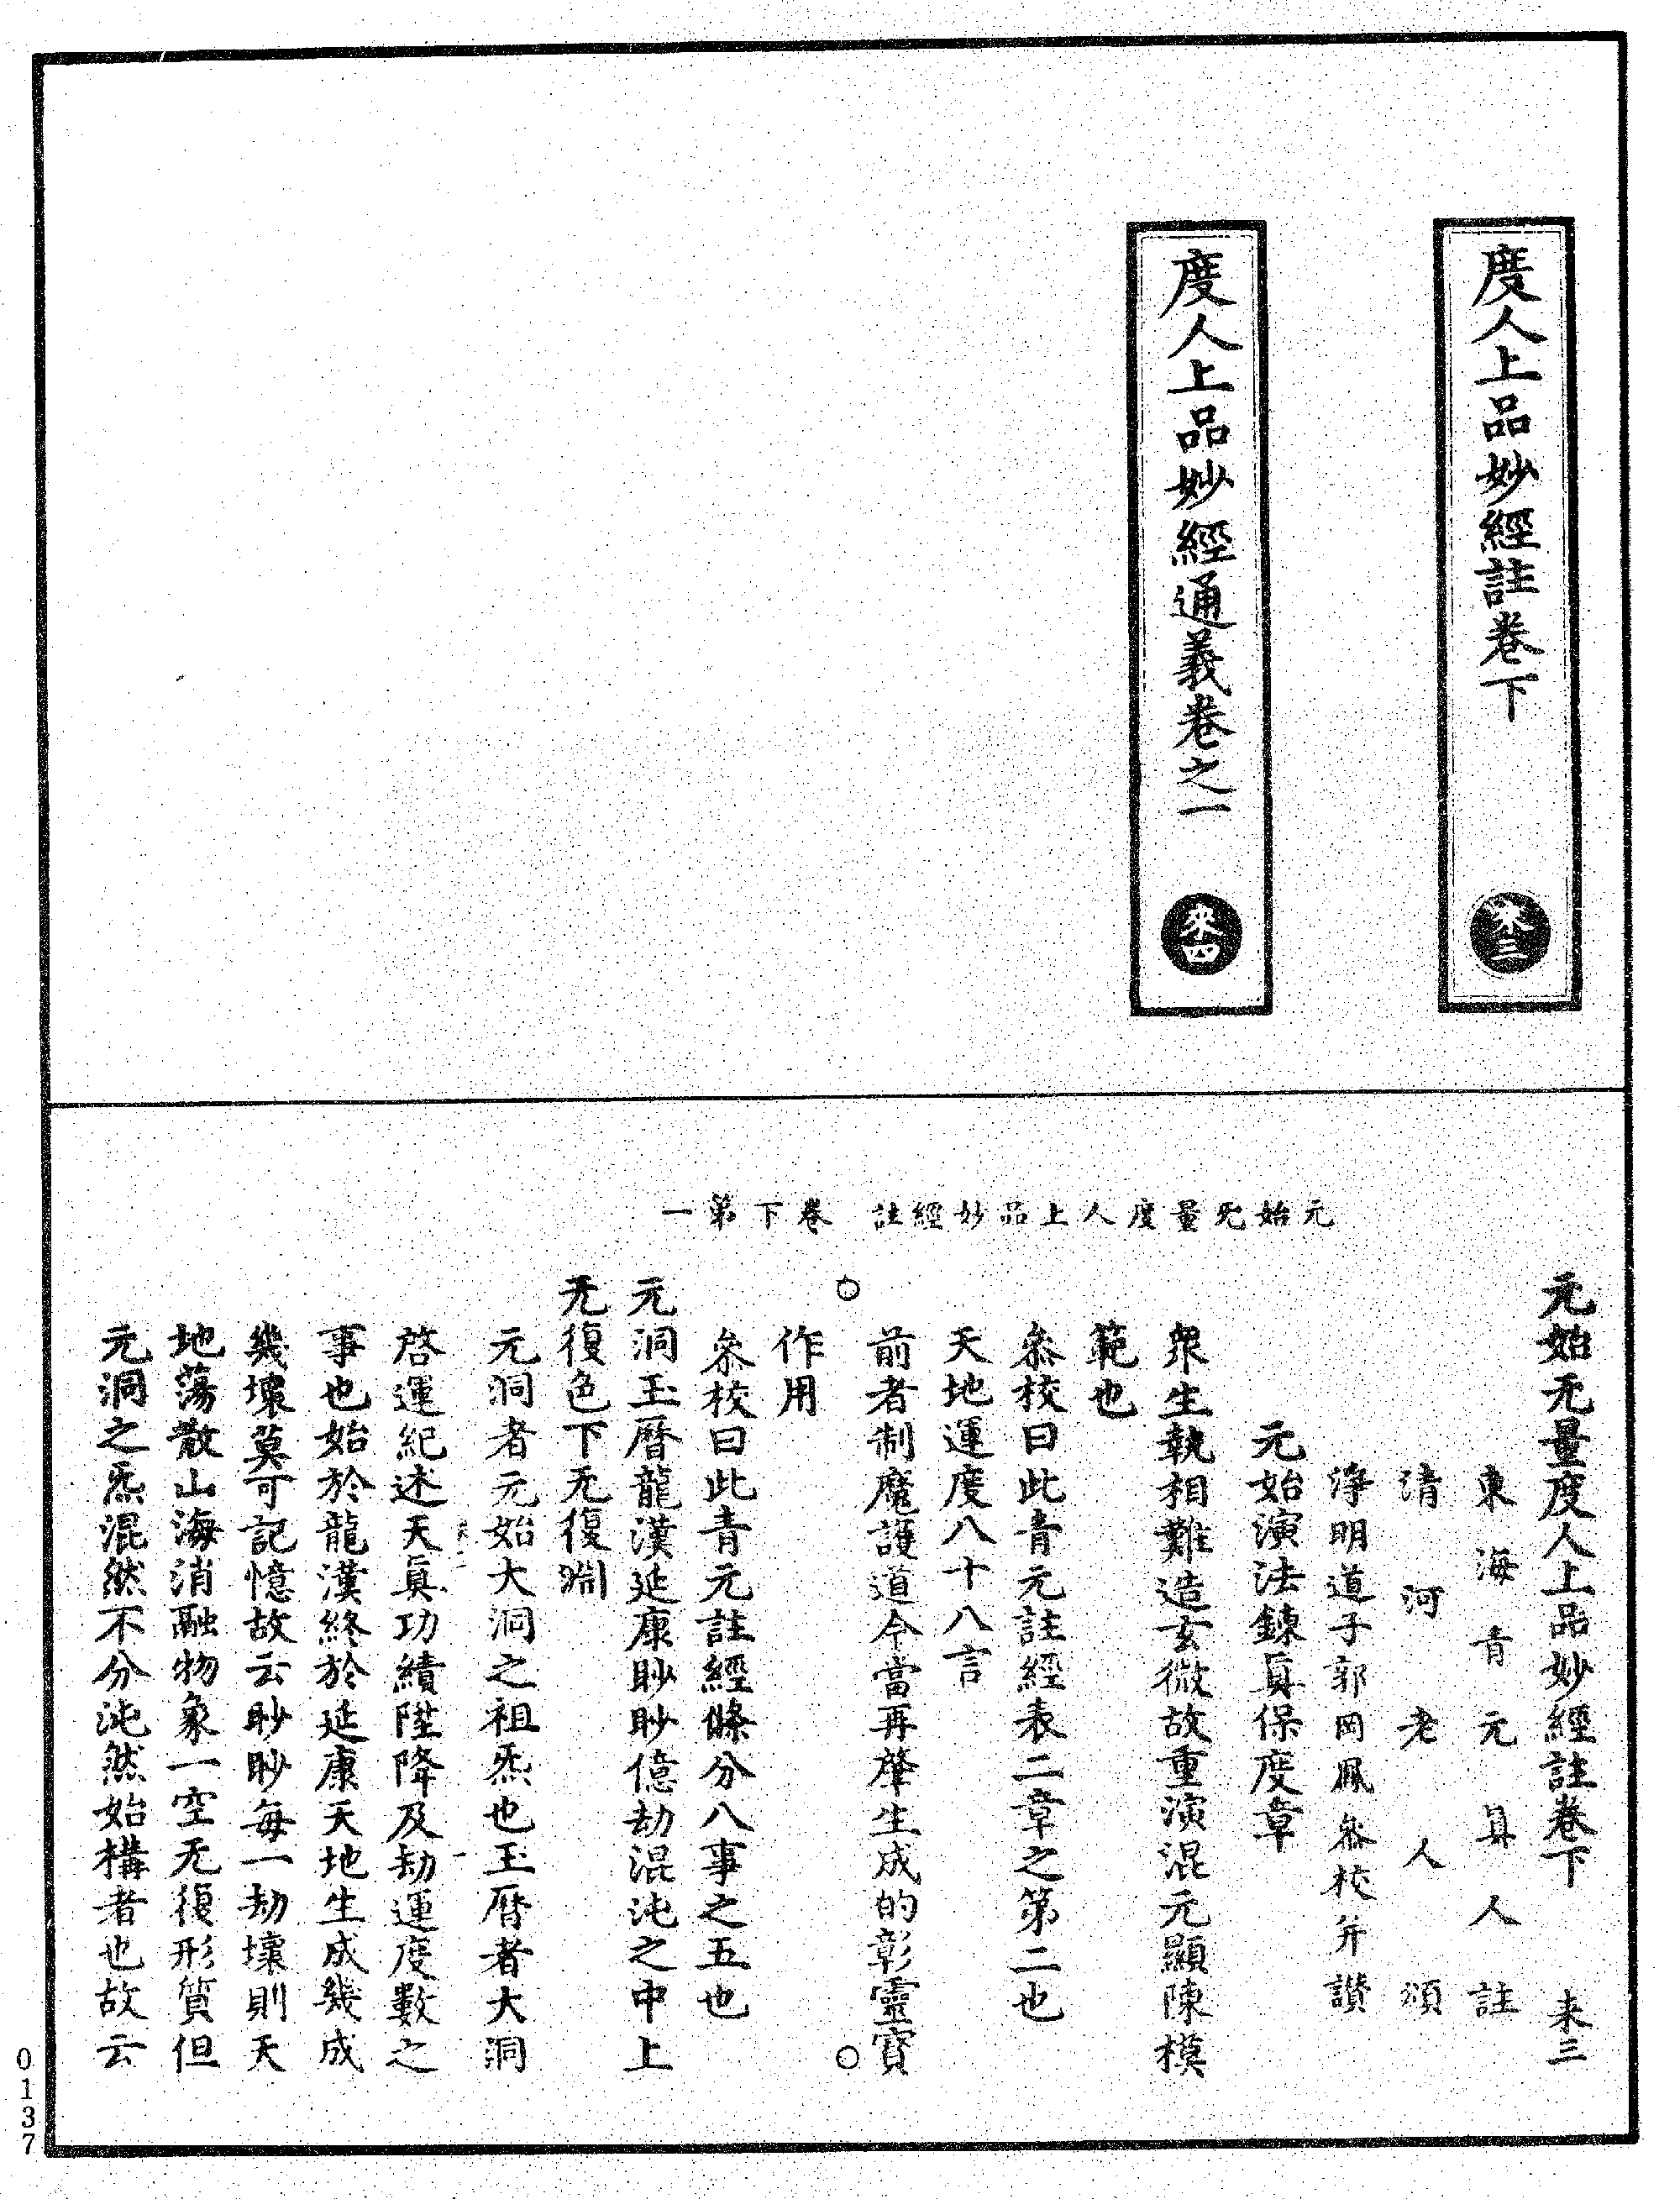 度人上品妙經註卷下　來三
度人上品妙經通義卷之一　來四
元始无量度人上品妙經註　卷下第一
元始无量度人上品妙經註卷下　来三
東海青元真人註
清河老人頌
淨明道子郭岡鳳叅校并讃
元始演法鍊真保度章
衆生執相難造玄微故重演混元顯陳模
範也
叅校曰此青元註經表二章之第二也
天地運度八十八言
○前者制魔護道今當再肇生成的彰靈寳○
作用
叅校曰此青元註經條分八事之五也
元洞玉曆龍漢延康眇眇億劫混沌之中上
无復色下无復淵
元洞者元始大洞之祖炁也玉曆者大洞
啓運紀述天真功績陞降及劫運度數之
事也始於龍漢終於延康天地生成幾成
幾壞莫可記憶故云眇眇每一劫壞則天
地蕩散山海消融物象一空无復形質但
元洞之炁混然不分沌然始構者也故云
0137